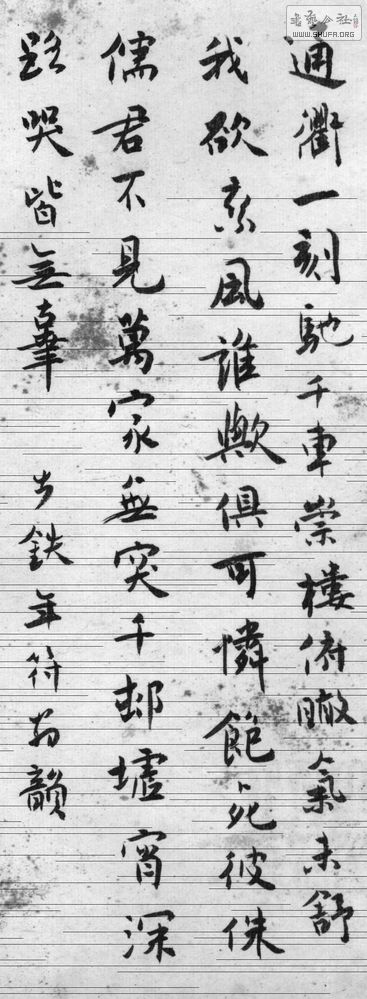 書藝公社
WWW.SHUFA.ORG
通衢一刻馳千車崇樓俯瞰氣未舒
我欲乘風誰歟俱可憐飽死彼侏
儒君不見萬家無突千邨墟宵深
路哭皆無辜 步鉄年符韻